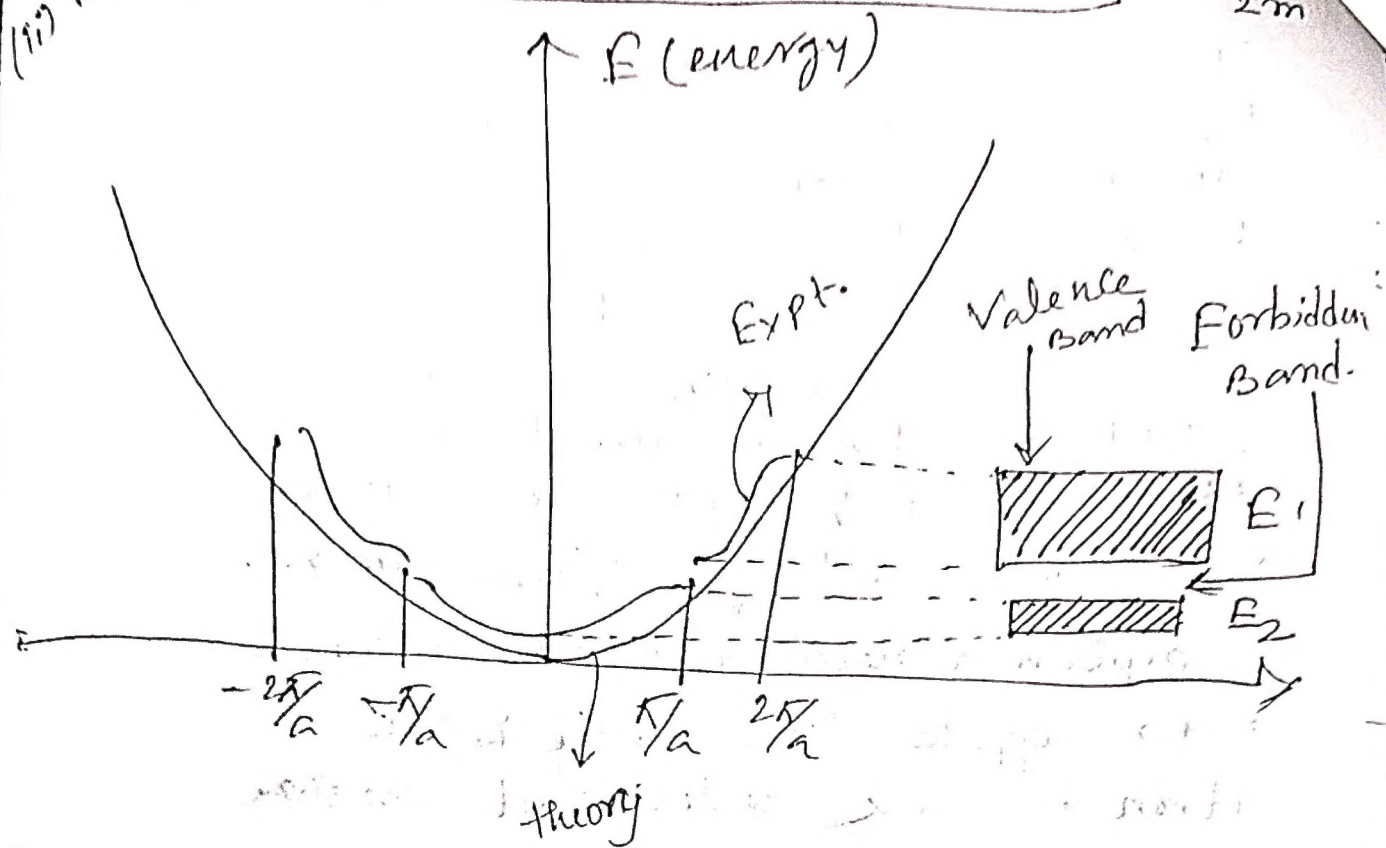 (ii)
2m
E (energy)
Expt.
Valence
Band
Forbidden
Band.
E1
E2
-2π/a
-π/a
π/a
2π/a
theory